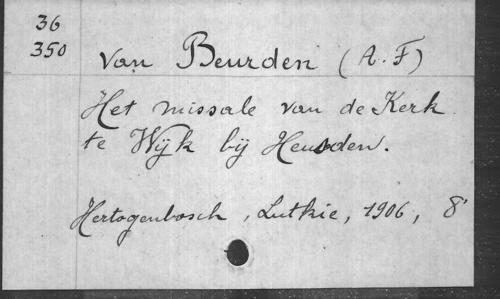 36
350
van Beurden (A. F)
Het missale van de Kerk
te Wijk bij Heusden.
Hertogenbosch, Lutkie, 1906, 8°